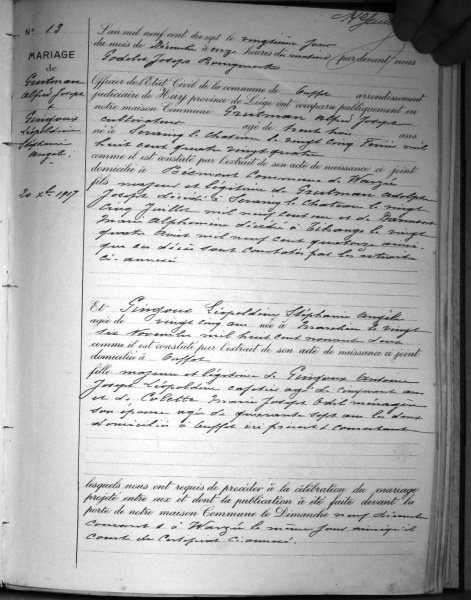 N° 13
MARIAGE
de
Grutman
Alfred Joseph
&
Gingoux
Léopoldine
Stéphanie
Angèle
20 Xbre 1917
L'an mil neuf cent dix sept le vingtième jour
du mois de Décembre à onze heures du matin par devant nous
Joseph
Officier de l'Etat Civil de la commune de Ouffet arrondissement
judiciaire de Huy province de Liège ont comparu publiquement en
notre maison Commune Grutman Alfred Joseph
cultivateur âgé de trente un ans
né à Seraing le Chateau le vingt cinq Février mil
huit cent quatre vingt
comme il est constaté par l'extrait de son acte de naissance ci joint
domicilié à Commune de Warzée
fils majeur et légitime de Grutman Adolphe
Joseph décédé à Seraing le Chateau le
cinq Juillet mil neuf cent un et de
Marie Alphonsine décédée à le vingt
quatre mil neuf cent quatorze ainsi
que ces décès sont constatés par les extraits
ci-annexés
Et Gingoux Léopoldine Stéphanie Angèle
agée de vingt cinq ans née à Marchin le vingt
six Novembre mil huit cent nonante
comme il est constaté par l'extrait de son acte de naissance ci joint
domicilié à Ouffet
fille majeure et légitime de Gingoux Antoine
Joseph Léopoldine agé de cinquante ans
et de Colette Marie Joseph Odil ménagère
son épouse agée de quarante sept ans les deux
domiciliés à Ouffet ici présents et consentant
lesquels nous ont requis de procéder à la célébration du mariage
projeté entre eux et dont la publication à été faite devant la
porte de notre maison Commune le Dimanche neuf Décembre
courant & à Warzée le même jour ainsi qu'il
conste du Certificat ci-annexé.